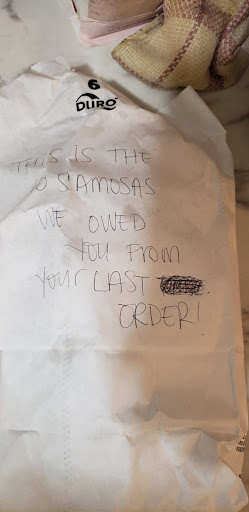 6
DURO
THIS IS THE
6 SAMOSAS
WE OWED
YOU FROM
YOUR LAST
ORDER!